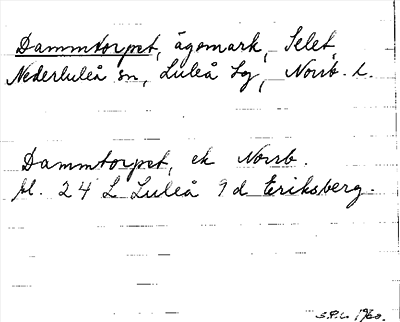 Dammtorpet, ägomark, Selet,
Nederluleå sn, Luleå Lg, Norrb. l.
Dammtorpet, ek Norrb.
bl. 24 L Luleå 9d Eriksberg.
S.P.L. 1960.